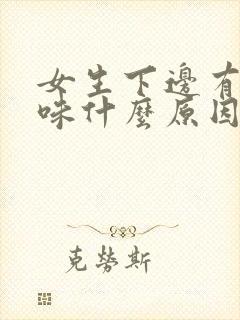 女生下邊有
味什麼原因
克勞斯